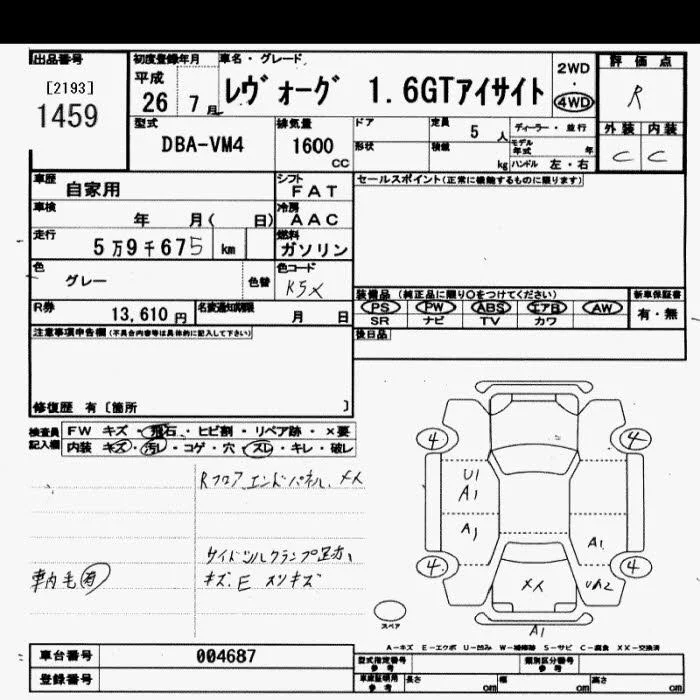 出品番号 初度登録年月 車名・グレード 評価点
[2193] 平成 レヴォーグ 1.6GTアイサイト 2WD
1459 26 7月 4WD R
型式 排気量 ドア 定員 5人 ディーラー・並行 外装 内装
DBA-VM4 1600 cc 形状 積載 kg モデル年式 年 C C
ハンドル 左・右
車歴 自家用 シフト FAT セールスポイント(正常に機能するものに限ります)
車検 年 月( 日) 冷房 AAC
走行 5万9千675 km 燃料 ガソリン
色 グレー 色替 色コード K5X
装備品 (純正品に限り○をつけてください) 新車保証書
R券 13,610円 名変通知期限 月 日 PS PW ABS エアB AW 有・無
SR ナビ TV カワ
注意事項申告欄(不具合内容等は具体的に記入して下さい) 後日品
修復歴 有〔箇所 〕
検査員記入欄 FW キズ・飛石・ヒビ割・リペア跡・×要
内装 キズ・汚レ・コゲ・穴・スレ・キレ・破レ
Rフロア エンドパネル、メX
サイドシルクランプ足赤、
キズ、E
車内毛有
4 4
U1
A1
A1 A1
4 4
XX UA2
スペア A1
A-キズ E-エクボ U-凹み W-補修跡 S-サビ C-腐食 XX-交換済
車台番号 004687 型式指定番号 参考 類別区分番号 参考
登録番号 車庫証明用 参考 長さ cm 幅 cm 高さ cm